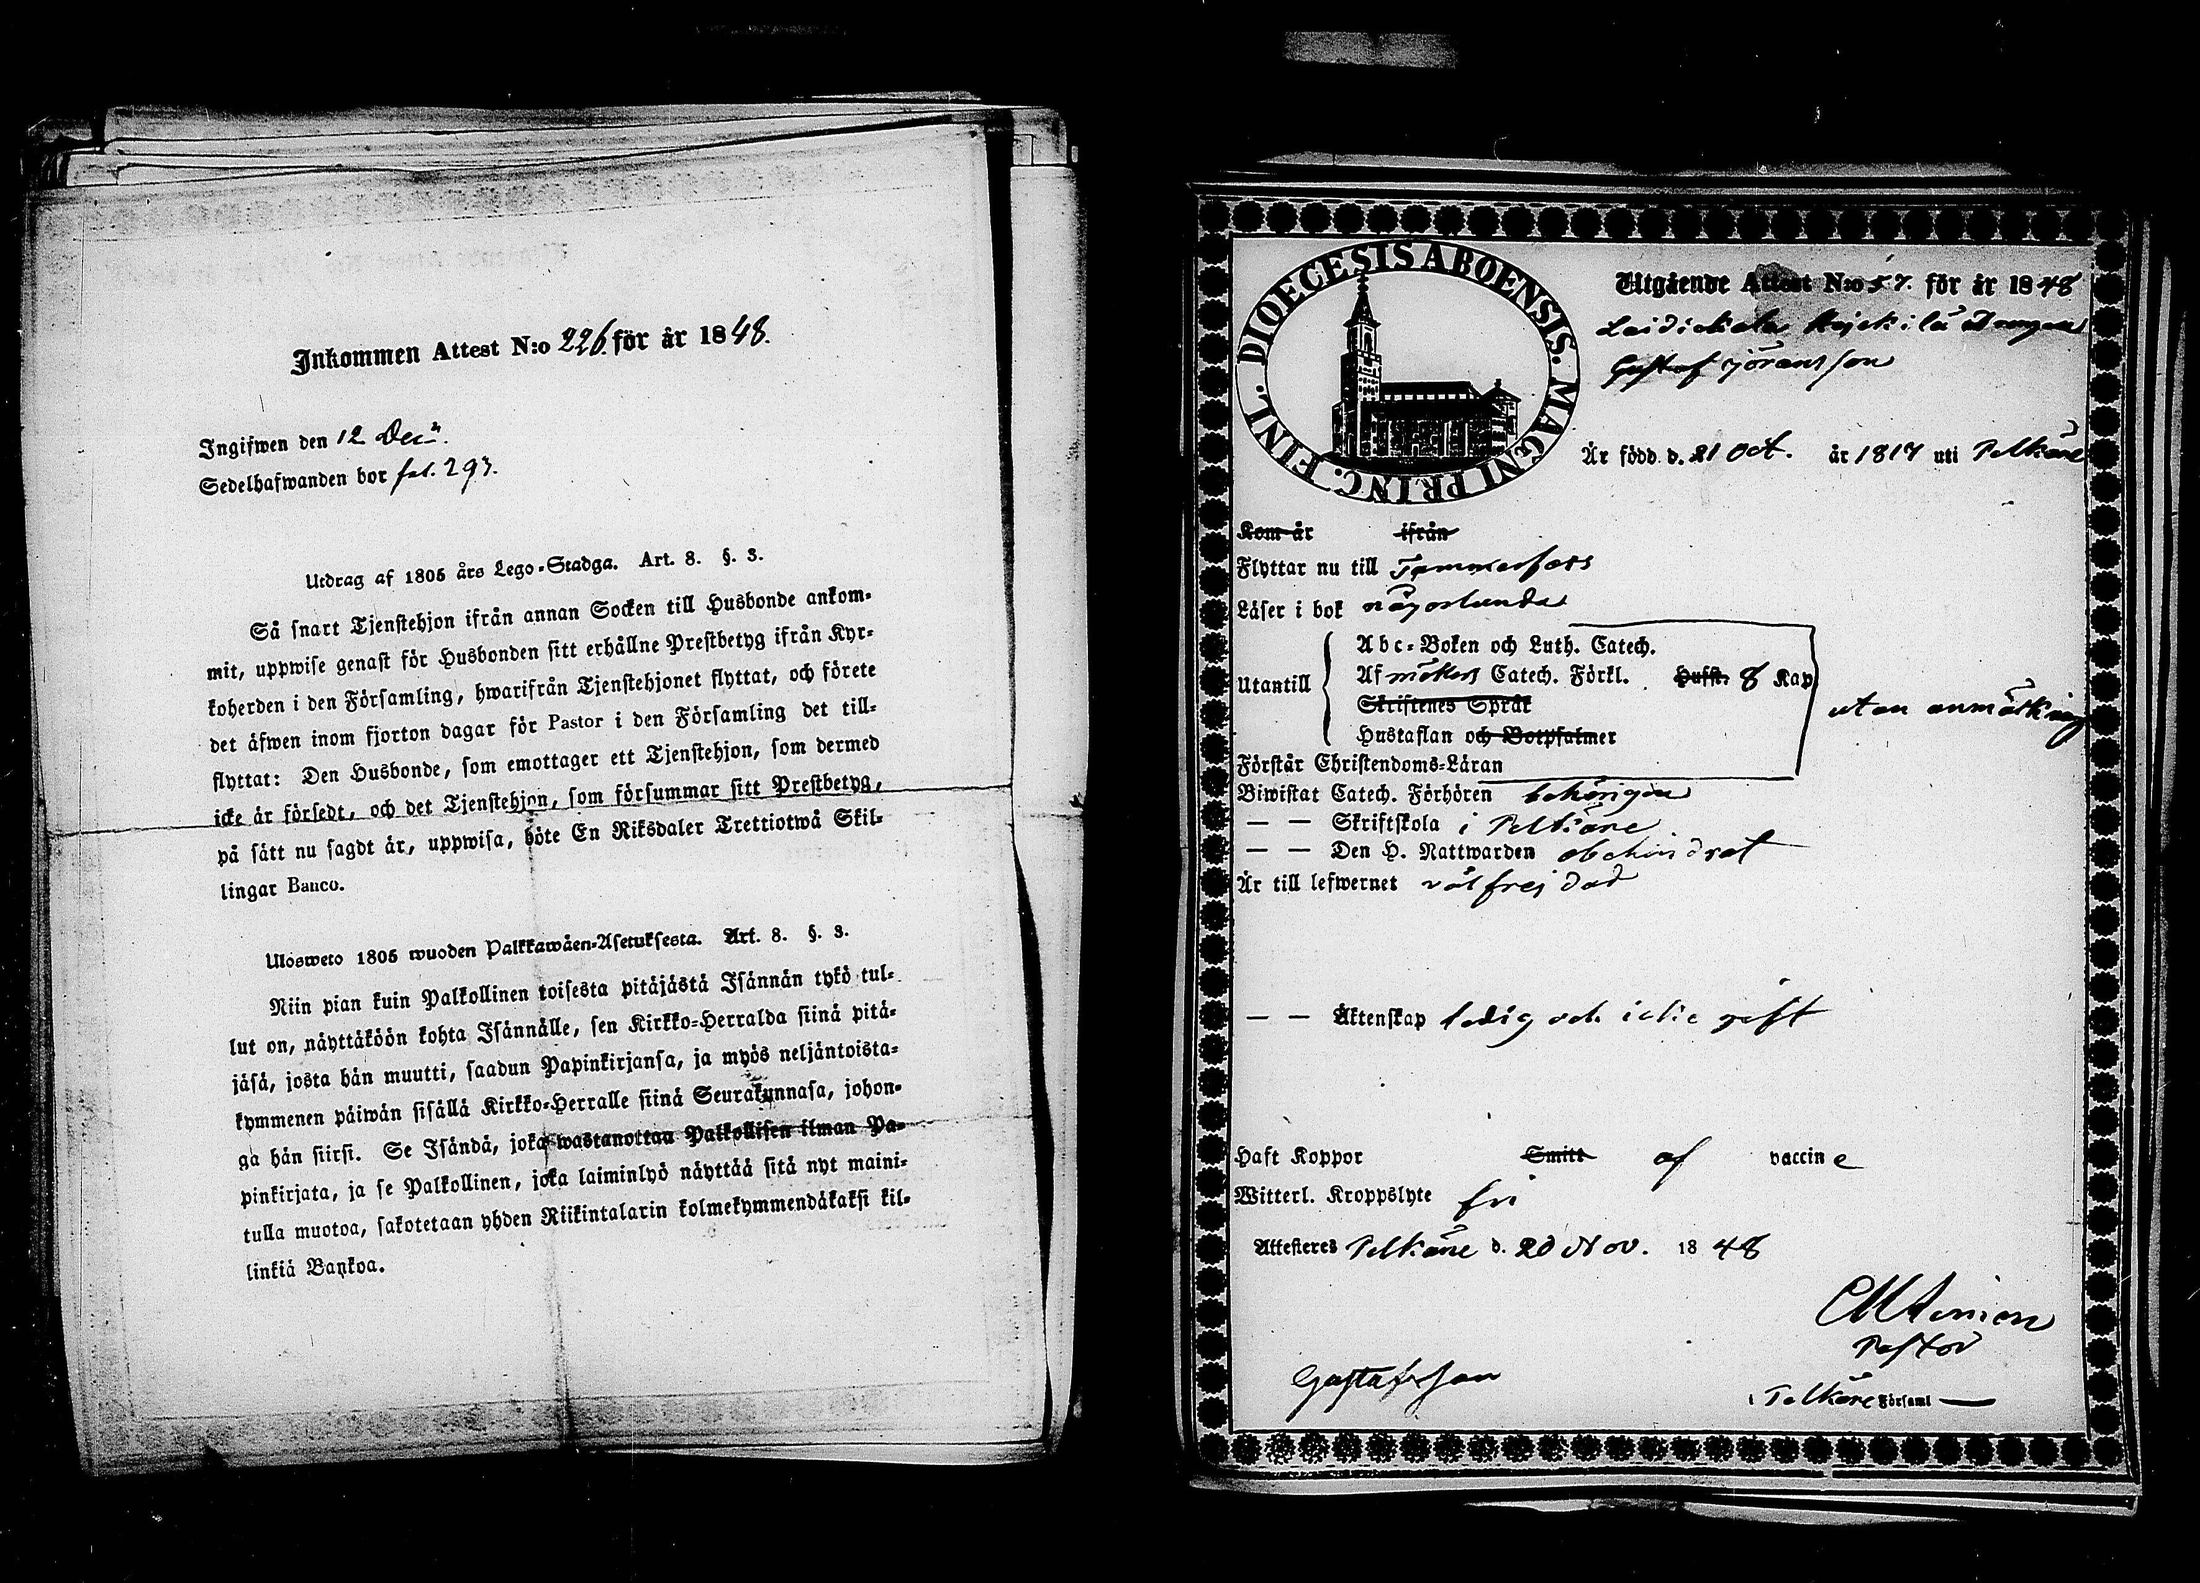 Inkommen Attest N:o 226. för år 1848.
Ingifwen den 12 Decr.
Sedelhafwanden bor fol. 293.
Utdrag af 1805 års Lego-Stadga. Art. 8. §. 3.
Så snart Tjenstehjon ifrån annan Socken till Husbonde ankom-
mit, uppwise genast för Husbonden sitt erhållne Prestbetyg ifrån Kyr-
koherden i den Församling, hwarifrån Tjenstehjonet flyttat, och förete
det äfwen inom fjorton dagar för Pastor i den Församling det till-
flyttat: Den Husbonde, som emottager ett Tjenstehjon, som dermed
icke är försedt, och det Tjenstehjon, som försummar sitt Prestbetyg,
på sätt nu sagdt är, uppwisa, böte En Riksdaler Trettiotwå Skil-
lingar Banco.
Ulosweto 1805 wuoden Palkkawäen-Asetuksesta. Art. 8. §. 3.
Niin pian kuin Palkollinen toisesta pitäjästä Isännän tykö tul-
lut on, näyttäköön kohta Isännälle, sen Kirkko-Herralda siinä pitä-
jäsä, josta hän muutti, saadun Papinkirjansa, ja myös neljäntoista-
kymmenen päiwän sisällä Kirkko-Herralle siinä Seurakunnasa, johon-
ga hän siirsi. Se Isändä, joka wastanottaa Palkollisen ilman Pa-
pinkirjata, ja se Palkollinen, joka laiminlyö näyttää sitä nyt maini-
tulla muotoa, sakotetaan yhden Riikintalarin kolmekymmendäkaksi kil-
linkiä Bankoa.
DIOECESIS ABOENSIS. MAGNI PRINC. FINL.
Utgående Attest N:o 57. för år 1848
Laidickala Kajckilä drengen
Gustaf Göransson
Är född d. 21 Oct. år 1817 uti Pelkäne
Kom år ifrån
Flyttar nu till Tammerfors
Läser i bok någorlunda
Abc-Boken och Luth. Catech.
Utantill Af Möllers Catech. Förkl. Hufst. 8 Kap
Skriftenes Språk
Hustaflan och Botpsalmer
utan anmärkning
Förstår Christendoms-Läran
Biwistat Catech. Förhören behörigen
— — Skriftskola i Pelkäne
— — Den H. Nattwarden obehindrat
Är till lefwernet välfrejdad
— — Äktenskap ledig och icke gift
Haft Koppor Smitt af vaccine
Witterl. Kroppslyte fri
Attesteres Pelkäne d. 20 Nov. 1848
Pastor
Gustafsson
i Pelkäne Församl